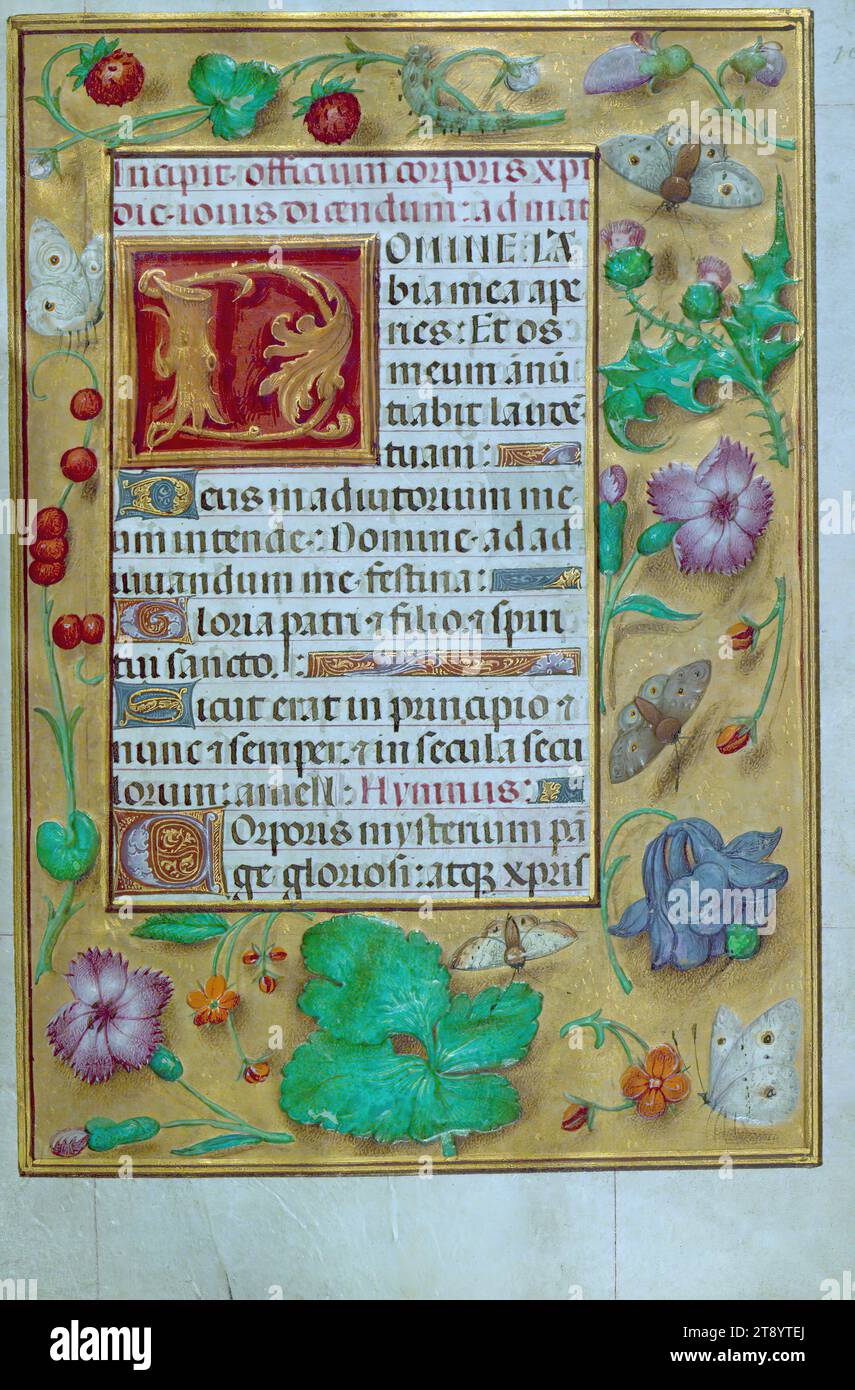 Incipit officium corporis xpi
die iouis dicendum: ad mat
DOMINE: LA
bia mea ape
ries: Et os
meum ānū
tiabit laudē
tuam:
Deus in adiutorium me
um intende: Domine ad ad
iuuandum me festina:
Gloria patri ⁊ filio ⁊ spiri
tui sancto.
Sicut erat in principio ⁊
nunc ⁊ semper. ⁊ in secula secu
lorum: amen: Hymnus:
COrporis mysterium pā
ge gloriosi: atqꝫ xpris
alamy
a
alamy
a
a
alamy
alamy
Image ID: 2T8YTEJ
www.alamy.com